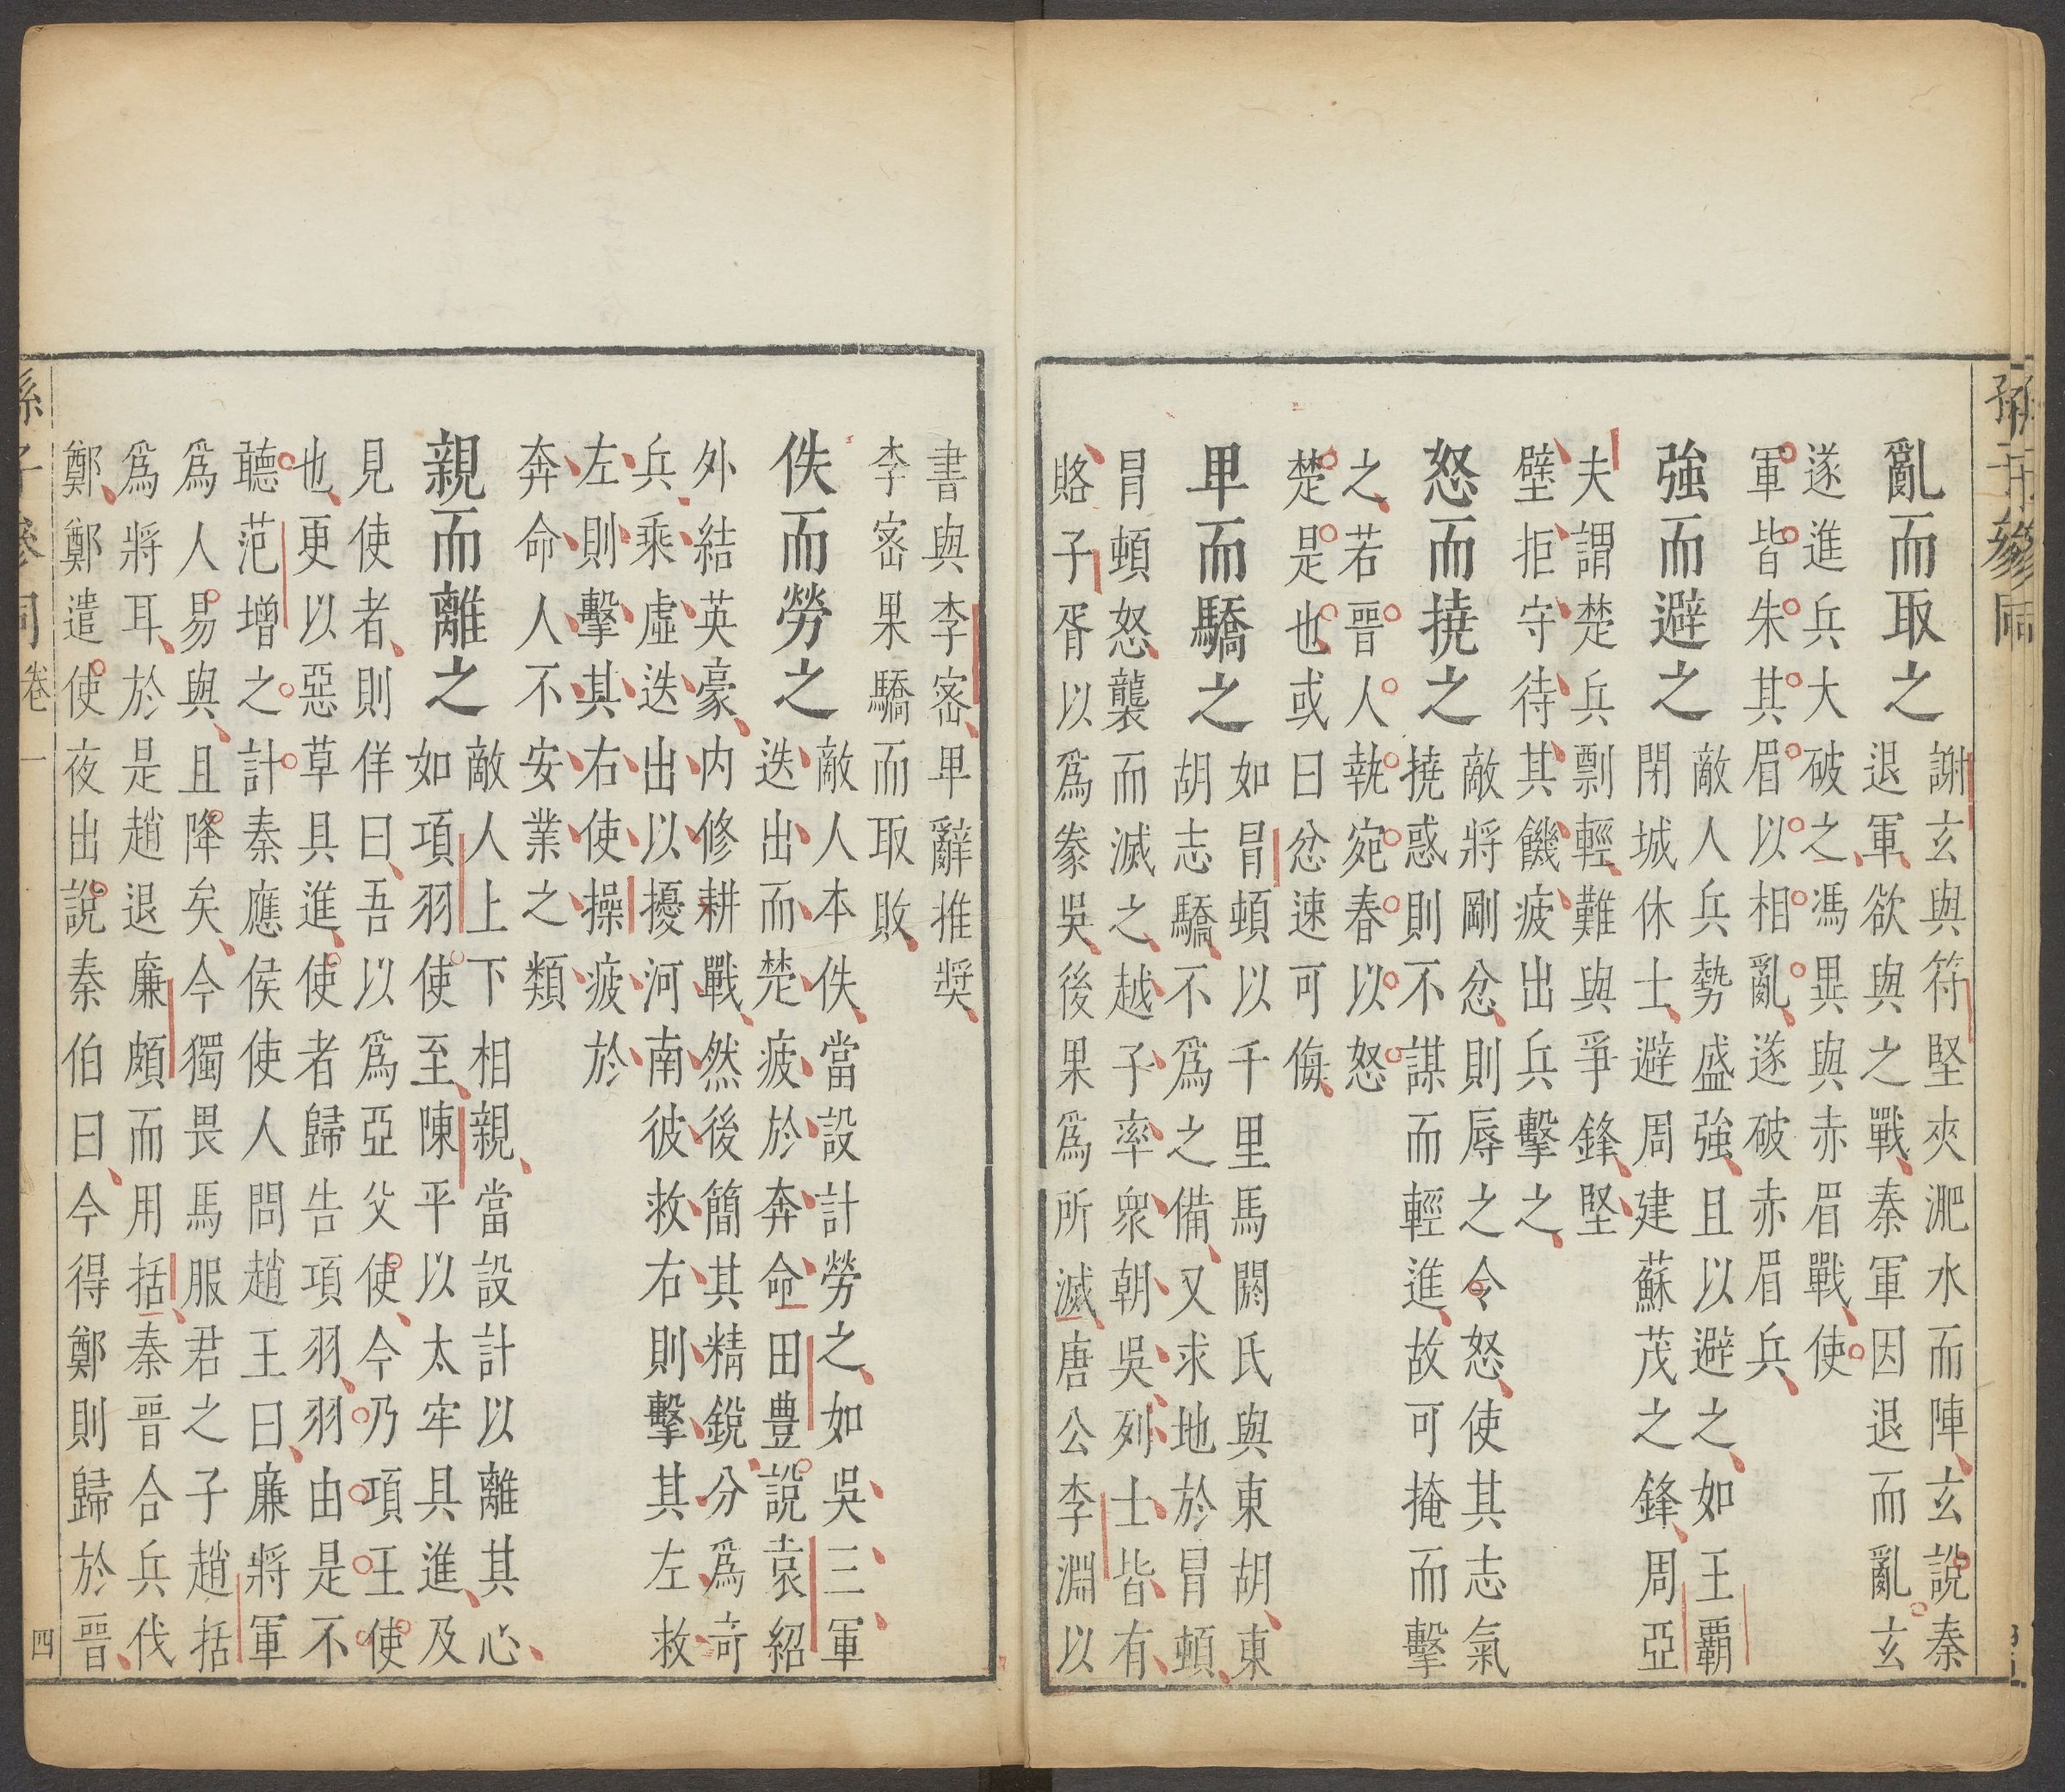 孫子參同
亂而取之
謝玄與符堅夾淝水而陣玄說秦
退軍欲與之戰秦軍因退而亂玄
遂進兵大破之馮異與赤眉戰使
軍皆朱其眉以相亂遂破赤眉兵
強而避之
敵人兵勢盛強且以避之如王霸
閉城休士避周建蘇茂之鋒周亞
夫謂楚兵剽輕難與爭鋒堅
壁拒守待其饑疲出兵擊之
怒而撓之
敵將剛忿則辱之令怒使其志氣
撓惑則不謀而輕進故可掩而擊
之若晉人執宛春以怒
楚是也或曰忿速可侮
卑而驕之
如冒頓以千里馬閼氏與東胡東
胡志驕不爲之備又求地於冒頓
冒頓怒襲而滅之越子率衆朝吳列士皆有
賂子胥以爲豢吳後果爲所滅唐公李淵以
書與李密卑辭推奬
李密果驕而取敗
佚而勞之
敵人本佚當設計勞之如吳三軍
迭出而楚疲於奔命田豊說袁紹
外結英豪内修耕戰然後簡其精銳分爲奇
兵乘虛迭出以擾河南彼救右則擊其左救
左則擊其右使操疲於
奔命人不安業之類
親而離之
敵人上下相親當設計以離其心
如項羽使至陳平以太牢具進及
見使者則佯曰吾以爲亞父使今乃項王使
也更以惡草具進使者歸告項羽羽由是不
聽范增之計秦應侯使人問趙王曰廉將軍
爲人易與且降矣今獨畏馬服君之子趙括
爲將耳於是趙退廉頗而用括秦晉合兵伐
鄭鄭遣使夜出說秦伯曰今得鄭則歸於晉
孫子參同 卷一 四